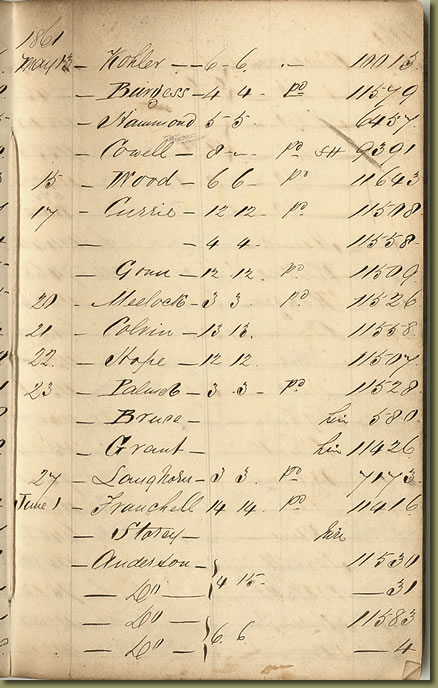 1861
May 13 – Kohler – – 6 – 6. – 10013.
– Burgess – 4 4 – pd 11579
– Hammond 5 – 5 – 6457.
– Cowell – 8 – – pd SH 9391
15 – Wood – 6 6 – pd 11643
17 – Currie – 12 12 – pd 11598
– – 4 4 – 11558 –
– – 12 12 – pd 11509
20 – – 3 3 – pd 11526
21 – Colvin – 13 13. 11558.
22 – Hope – 12 12. 11507
23 – – 3 – 3 – pd 11528
– Bruce – hire 580
– Grant – hire 11426
27 – Langhorn – 3 3. pd 7173
June 1 – Franchell 14 14 – pd 11416
– Storey – hire
– Anderson – 11530
– Do } 4 15 – – 31
– Do 11583
– Do } 6. 6. – 4